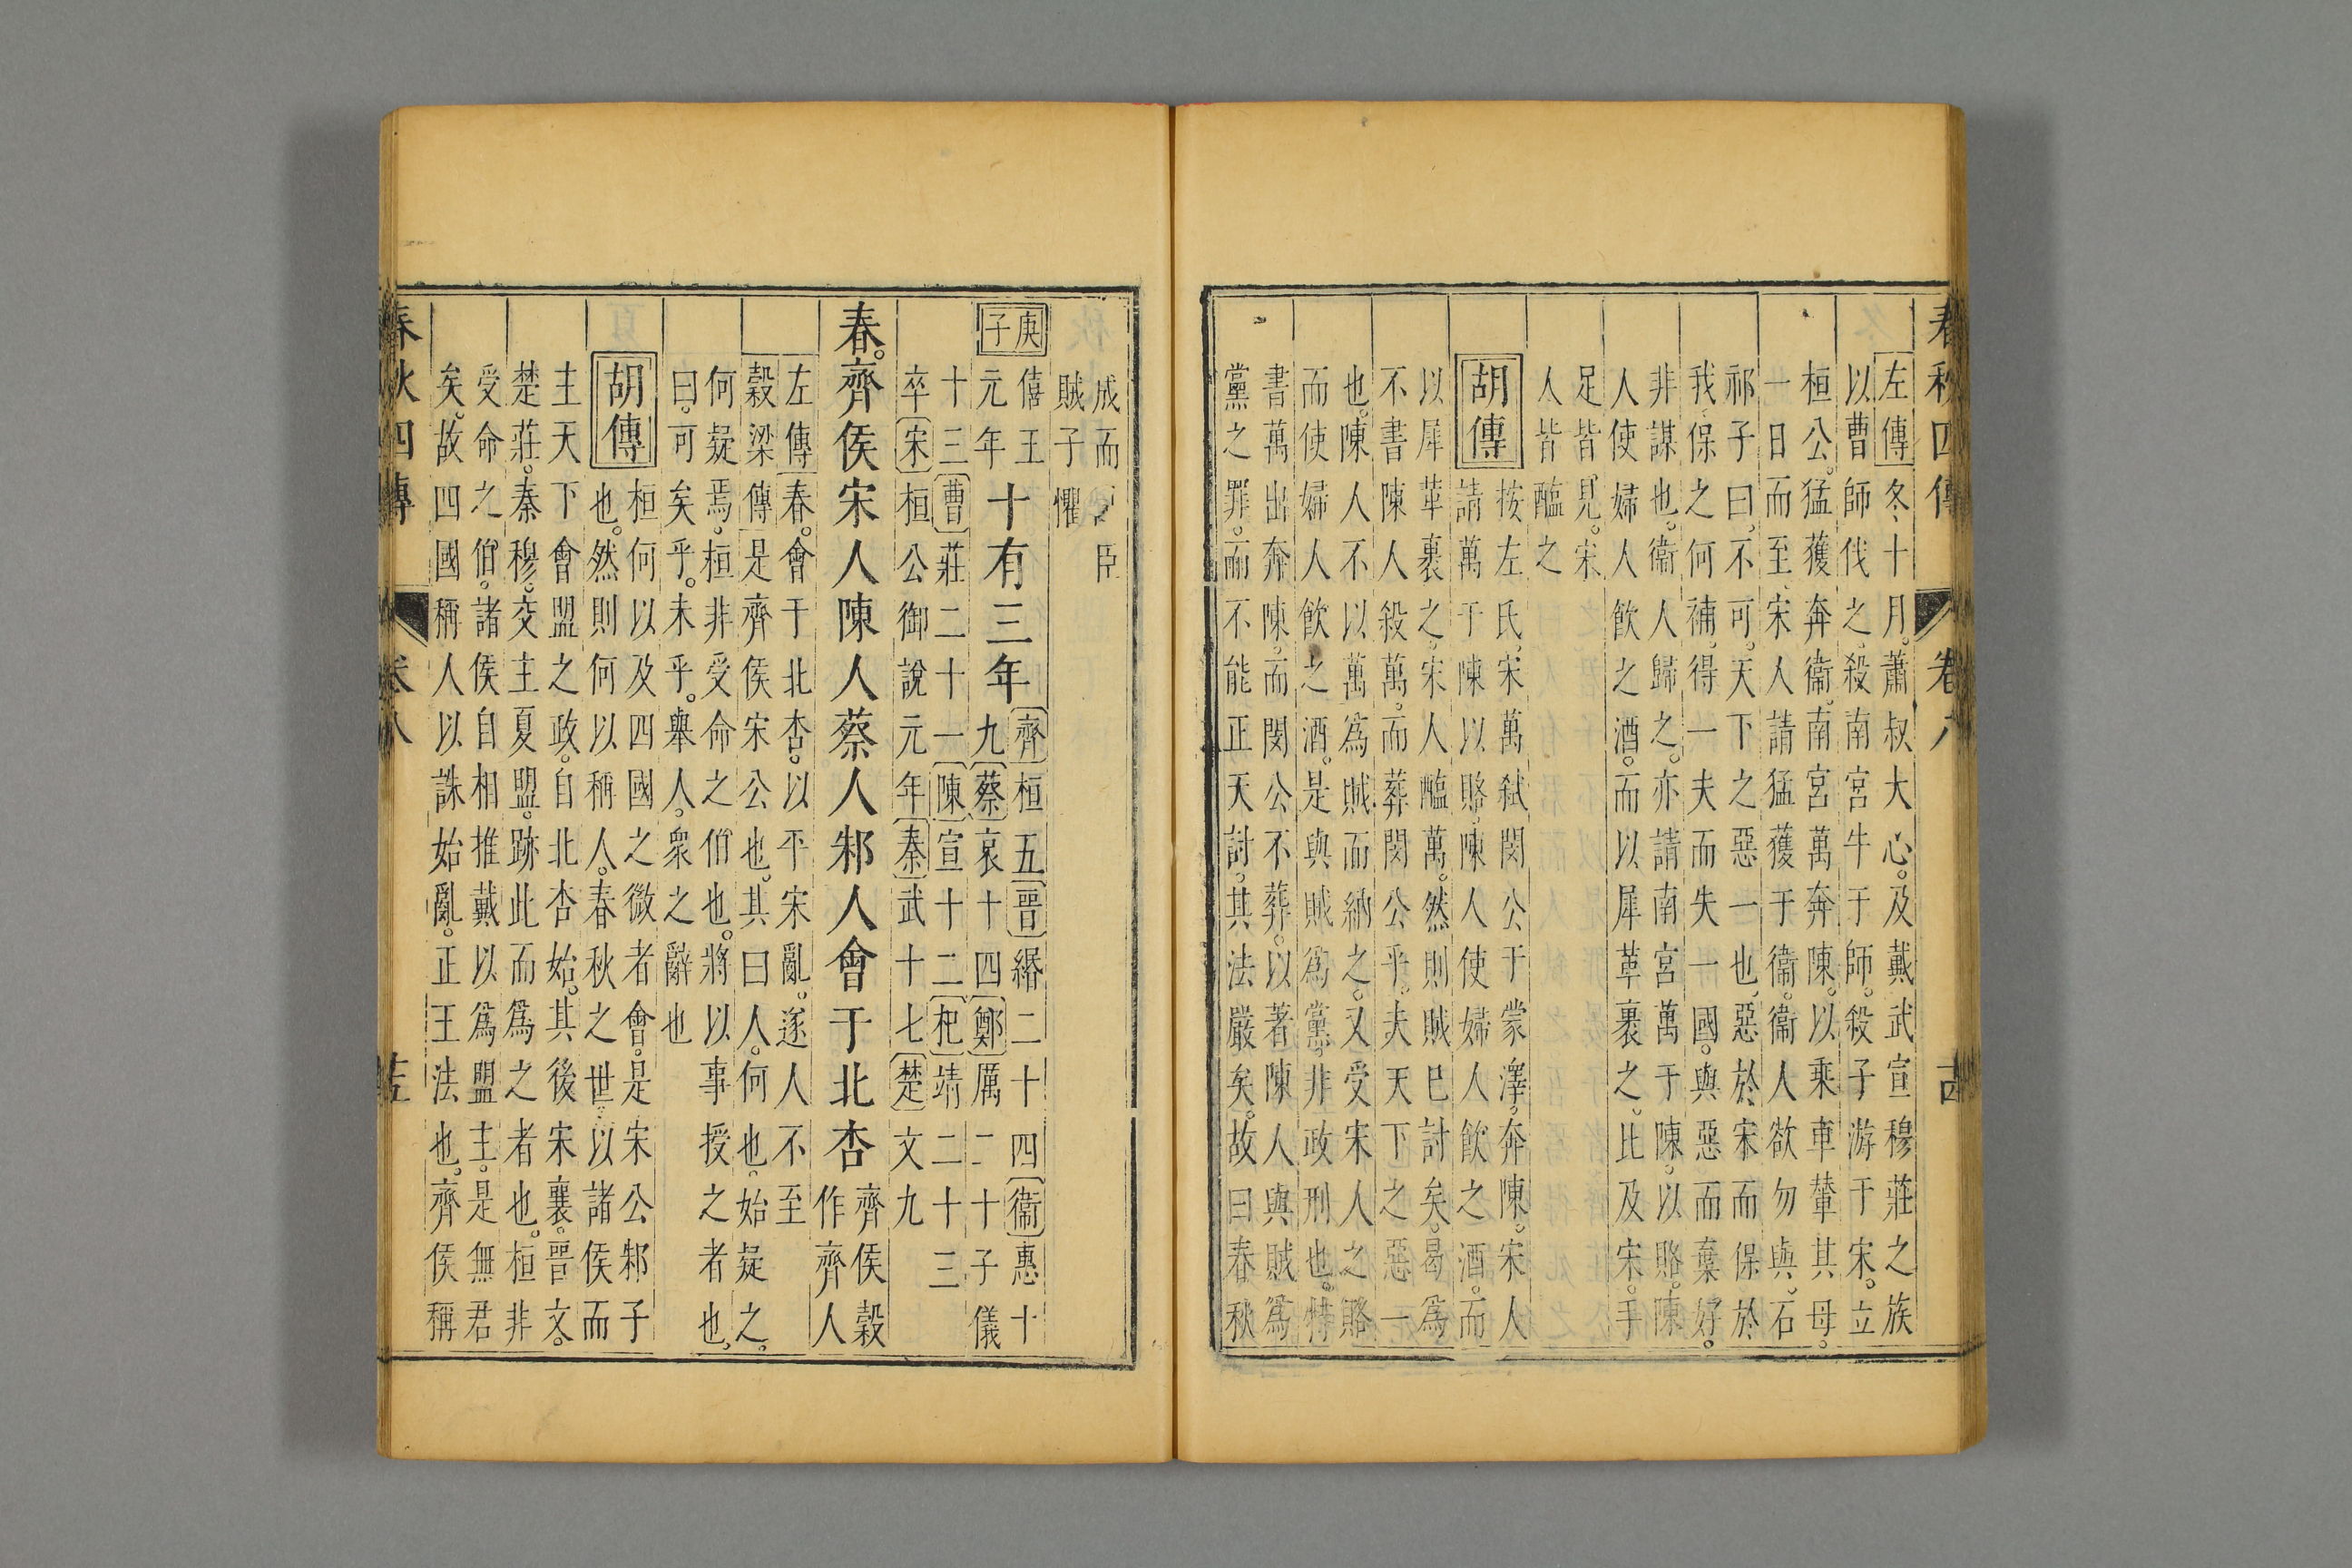 春秋四傳
卷八
左傳冬十月。蕭叔大心。及戴武宣穆莊之族
以曹師伐之。殺南宮牛于師。殺子游于宋。立
桓公。猛獲奔衞。南宮萬奔陳。以乘車輦其母。
一日而至、宋人請猛獲于衞。衞人欲勿與。石
祁子曰、不可。天下之惡一也。惡於宋而保於
我、保之何補。得一夫而失一國。與惡而棄好。
非謀也。衞人歸之。亦請南宮萬于陳。以賂。陳
人使婦人飲之酒。而以犀革裹之。比及宋。手
足皆見。宋
人皆醢之
胡傳
按左氏、宋萬弑閔公于蒙澤。奔陳。宋人
請萬于陳以賂。陳人使婦人飲之酒。而
以犀革裹之。宋人醢萬。然則賊已討矣。曷爲
不書陳人殺萬。而葬閔公乎。夫天下之惡一
也。陳人不以萬爲賊而納之。又受宋人之賂
而使婦人飲之酒。是與賊爲黨。非政刑也。特
書萬出奔陳。而閔公不葬。以著陳人與賊爲
黨之罪。而不能正天討。其法嚴矣。故曰春秋
成而亂臣
賊子懼
庚子
僖王
元年
十有三年
齊桓五晉緡二十四衞惠十
九蔡哀十四鄭厲二十子儀
十三曹莊二十一陳宣十二杞靖二十三
卒宋桓公御說元年秦武十七楚文九
春。齊侯宋人陳人蔡人邾人會于北杏
齊侯穀
作齊人
左傳春。會于北杏。以平宋亂。遂人不至
穀梁傳是齊侯宋公也。其曰人。何也。始疑之。
何疑焉。桓非受命之伯也。將以事授之者也。
曰。可矣乎。未乎。舉人。衆之辭也
胡傳
桓何以及四國之微者會。是宋公邾子
也。然則何以稱人。春秋之世。以諸侯而
主天下會盟之政。自北杏始。其後宋襄。晉文。
楚莊。秦穆。交主夏盟。跡此而爲之者也。桓非
受命之伯。諸侯自相推戴以爲盟主。是無君
矣。故四國稱人以誅始亂。正王法也。齊侯稱
春秋四傳
卷八